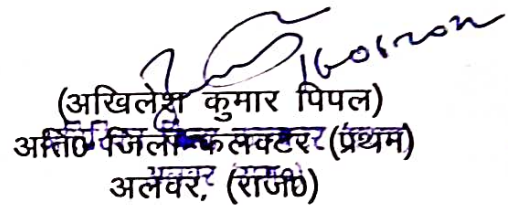 (अखिलेश कुमार पिपल)
अति० जिला कलक्टर (प्रथम)
अलवर, (राज०)